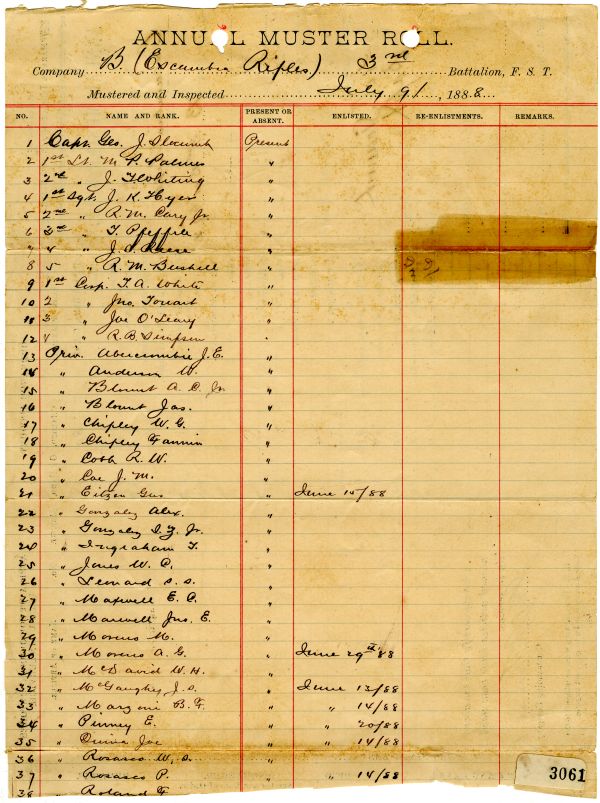 ANNUAL MUSTER ROLL.
Company B. (Escambia Rifles) 3rd Battalion, F. S. T.
Mustered and Inspected July 9/, 1888
NO. NAME AND RANK. PRESENT OR ABSENT. ENLISTED. RE-ENLISTMENTS. REMARKS.
1 Capt. Geo. J. Slocumb Present
2 1st Lt. M. P. Palmes "
3 2nd " J. Whiting "
4 1st Sgt. J. K. Hyer "
5 2nd " R. M. Cary Jr. "
6 3rd " T. Pfeiffer "
4 " J. "
8 5 " R. M. Bushell "
9 1st Corp. T. A. White "
10 2 " Jno. Touart "
11 3 " Joe O'Leary "
12 4 " R. B. Simpson "
13 Priv. Abercrombie J. E. "
14 " Anderson W. "
15 " Blount A. C. Jr. "
16 " Blount Jas. "
17 " Chipley W. G. "
18 " Chipley Fannin "
19 " Cobb R. W. "
20 " Coe J. M. "
21 " Eitzen Gus " June 14/88
22 " Gonzalez Alex. "
23 " Gonzalez S. Z. Jr. "
24 " Ingraham T. "
25 " Jones W. C. "
26 " Leonard S. S. "
27 " Maxwell E. C. "
28 " Maxwell Jno. E. "
29 " Moreno M. "
30 " Moreno A. G. " June 29th 88
31 " McDavid W. H. "
32 " McGaughey J. S. " June 13/88
33 " Marzoni B. F. " " 14/88
34 " Pinney E. " " 20/88
35 " Quina Joe " " 14/88
36 " Rosasco W. S. "
37 " Rosasco P. " " 14/88
38 " Roland F.
3061